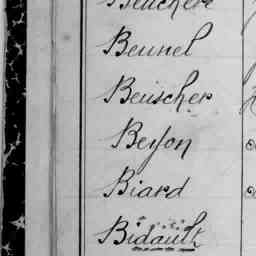 Beunel
Beuscher
Beyson
Biard
Bidault